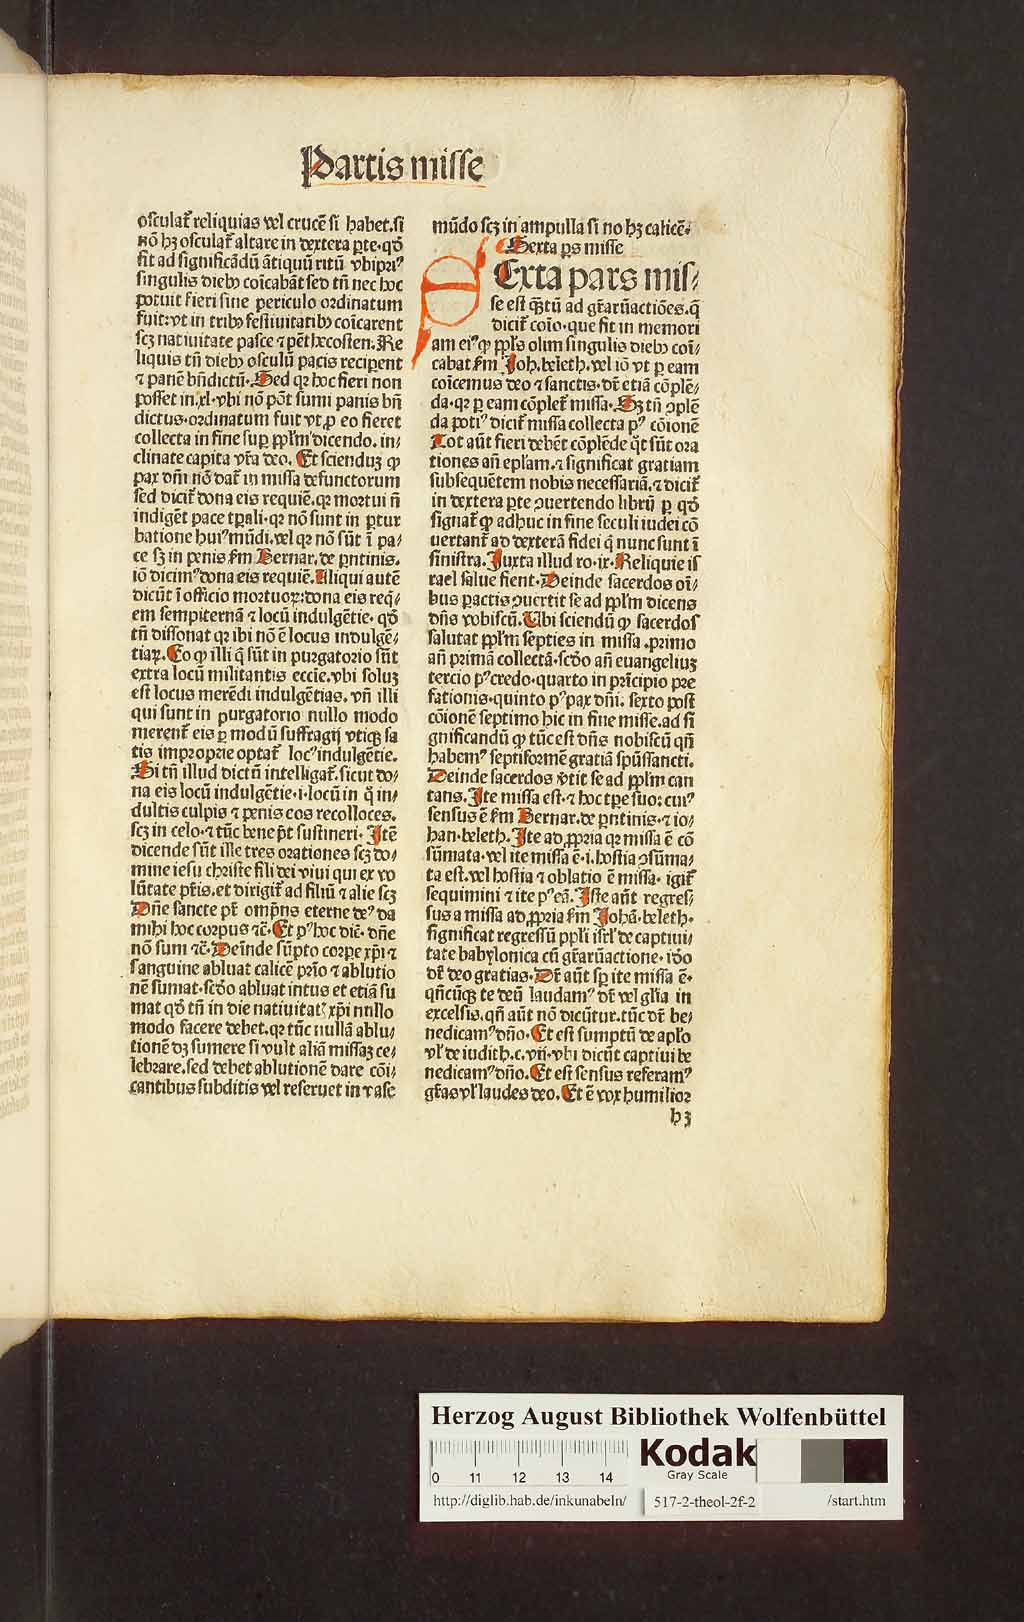 Partis misse
osculat᷑ reliquias vel crucē si habet.si
nō hꝫ osculat᷑ altare in dextera ꝑte.qđ
fit ad significādū ātiquū ritū vbipriꝰ
singulis diebꝰ coīcabāt sed tn̄ nec hoc
potuit fieri sine periculo ordinatum
fuit:vt in tribꝰ festiuitatibꝰ coīcarent
scꝫ natiuitate pasce ⁊ pēthecosten.Re
liquis tn̄ diebꝰ osculū pacis recipent
⁊ panē bn̄dictū.Sed qꝛ hoc fieri non
posset in.xl.vbi nō pōt sumi panis bn̄
dictus.ordinatum fuit vt ꝓ eo fieret
collecta in fine suꝑ ppl̄m dicendo.in⸗
clinate capita vr̄a deo. Et scienduꝫ ꝙ
pax dn̄i nō dat᷑ in missa defunctorum
sed dicit᷑ dona eis requiē.qꝛ mortui n̄
indigēt pace tꝑali.qꝛ nō sunt in ꝑtur
batione huiꝰ mūdi.vel qꝛ nō sūt ī pa⸗
ce sꝫ in penis ẜm Bernar.de ꝑntinis.
iō dicimꝰ dona eis requiē.Aliqui autē
dicūt ī officio mortuoꝝ:dona eis req̄⸗
em sempiternā ⁊ locū indulgētie. qđ
tn̄ dissonat qꝛ ibi nō ē locus indulgē⸗
tiaꝝ.Eo ꝙ illi q̄ sūt in purgatorio sūt
extra locū militantis eccīe.vbi soluꝫ
est locus merēdi indulgētias. vn̄ illi
qui sunt in purgatorio nullo modo
merent᷑ eis ꝑ modū suffragij vtiqꝫ sa
tis improprie optat᷑ locꝰ indulgētie.
Si tn̄ illud dictū intelligat᷑.sicut do⸗
na eis locū indulgētie.i.locū in q̊ in⸗
dultis culpis ⁊ penis eos recolloces.
scꝫ in celo.⁊ tūc bene p̄t sustineri. Itē
dicende sūt ille tres orationes scꝫ do⸗
mine iesu christe fili dei viui qui ex vo
lūtate pr̄is.et dirigit᷑ ad filiū ⁊ alie scꝫ
Dn̄e sancte pr̄ omp̄ns eterne deꝰ da
mihi hoc corpus ⁊c̄.Et pꝰ hoc dic̄. dn̄e
nō sum ⁊c̄.Deīnde sūpto corꝑe xp̄i ⁊
sanguine abluat calicē prīo ⁊ ablutio
nē sumat.scđo abluat intus et etiā su
mat qđ tn̄ in die natiuitatꝭ xp̄i nullo
modo facere debet.qꝛ tūc nullā ablu⸗
tionē dꝫ sumere si vult aliā missaꝫ ce⸗
lebrare.sed debet ablutionē dare cōi⸗
cantibus subditis vel reseruet in vase
mūdo scꝫ in ampulla si no hꝫ calicē.
Sexta ps misse
SExta pars mis⸗
se est qꝫtū ad gr̄aruꝫactiōes.q̄
dicit᷑ coīo.que fit in memori
am eiꝰ ꝙ ppl̄s olim singulis diebꝰ coī⸗
cabat ẜm Joh.beleth.vel iō vt ꝑ eam
coīcemus deo ⁊ sanctis.dr̄ etiā cōplē⸗
da.qꝛ ꝑ eam cōplet᷑ missa.Sꝫ tn̄ ↄplē
da potiꝰ dicit᷑ missa collecta pꝰ cōionē
Tot aūt fieri debēt cōplēde q̄t sūt ora
tiones an̄ epl̄am.⁊ significat gratiam
subsequētem nobis necessariā.⁊ dicit᷑
in dextera ꝑte ↄuertendo librū ꝑ qđ
signat᷑ ꝙ adhuc in fine seculi iudei cō
uertant᷑ ad dexterā fidei q̄ nunc sunt ī
sinistra.Juxta illud ro.ix.Reliquie is
rael salue fient.Deinde sacerdos oī⸗
bus ꝑactis ↄuertit se ad ppl̄m dicens
dn̄s vobiscū.Ubi sciendū ꝙ sacerdos
salutat ppl̄m septies in missa.primo
an̄ primā collectā.scđo an̄ euangeliuꝫ
tercio pꝰ credo.quarto in prīcipio pre
fationis.quinto pꝰ pax dn̄i. sexto post
cōionē septimo hic in fine misse.ad si
gnificandū ꝙ tūc est dn̄s nobiscū qn̄
habemꝰ septiformē gratiā spūssancti.
Deinde sacerdos v̄tit se ad ppl̄m can
tans.Ite missa est.⁊ hoc tꝑe suo: cuiꝰ
sensus ē ẜm Bernar.de ꝑntinis.⁊ io⸗
han.beleth.Ite ad ꝓpria qꝛ missa ē cō
sūmata.vel ite missa ē.i.hostia ↄsūma⸗
ta est.vel hostia ⁊ oblatio ē missa. igit᷑
sequimini ⁊ ite pꝰ eā. Iste aūt regres⸗
sus a missa ad ꝓpria ẜm Johā.beleth.
significat regressū ppl̄i isrl̄ de captiui⸗
tate babylonica cū gr̄aruꝫactione. iđo
dr̄ deo gratias.Dr̄ aūt sꝑ ite missa ē.
qn̄cūqꝫ te deū laudamꝰ dr̄ vel gl̄ia in
excelsis.qn̄ aūt nō dicūtur.tūc dr̄ be⸗
nedicamꝰ dn̄o.Et est sumptū de apl̄o
vl̄ de iudith.c.vij.vbi dicūt captiui be
nedicamꝰ dn̄o.Et est sensus referamꝰ
gr̄as vl̄ laudes deo.Et ē vox humilior
hꝫ
Herzog August Bibliothek Wolfenbüttel
0 11 12 13 14
Kodak
Gray Scale
http://diglib.hab.de/inkunabeln/ 517-2-theol-2f-2 /start.htm